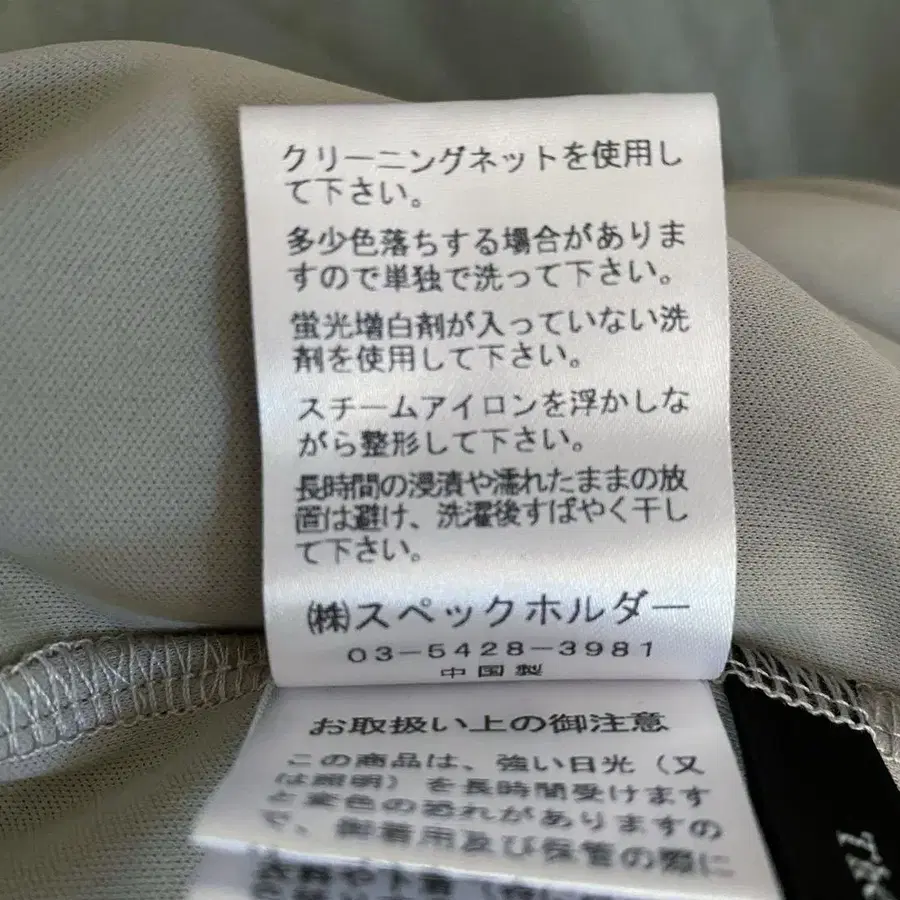 クリーニングネットを使用し
て下さい。
多少色落ちする場合がありま
すので単独で洗って下さい。
蛍光増白剤が入っていない洗
剤を使用して下さい。
スチームアイロンを浮かしな
がら整形して下さい。
長時間の浸漬や濡れたままの放
置は避け、洗濯後すばやく干し
て下さい。
㈱スペックホルダー
03-5428-3981
中国製
お取扱い上の御注意
この商品は、強い日光（又
は照明）を長時間受けます
と変色の恐れがありますの
で、御着用及び保管の際に